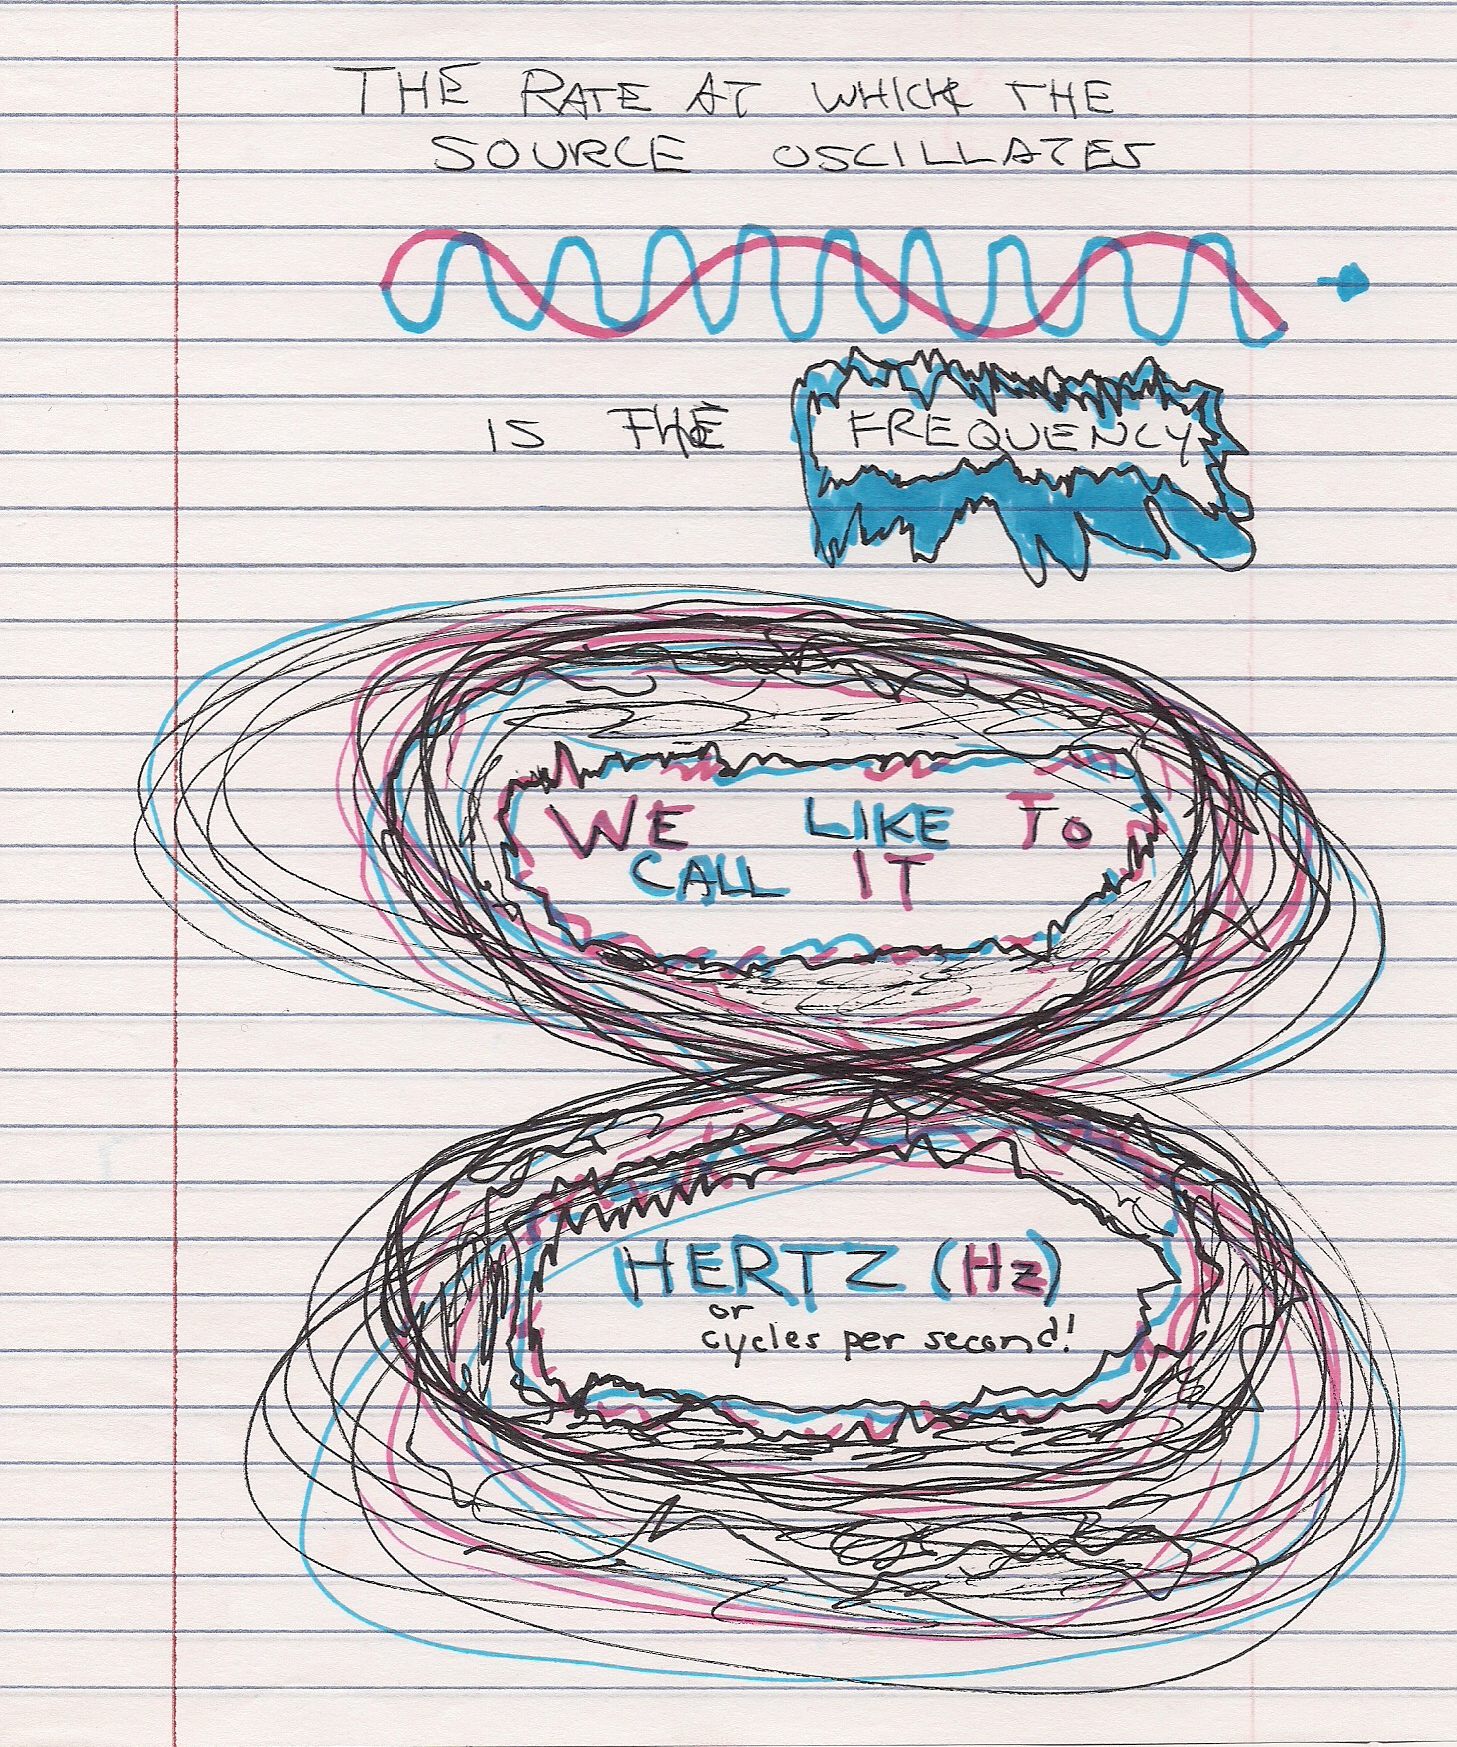 THE RATE AT WHICH THE
SOURCE OSCILLATES
IS THE FREQUENCY
WE LIKE TO
CALL IT
HERTZ (Hz)
or
cycles per second!